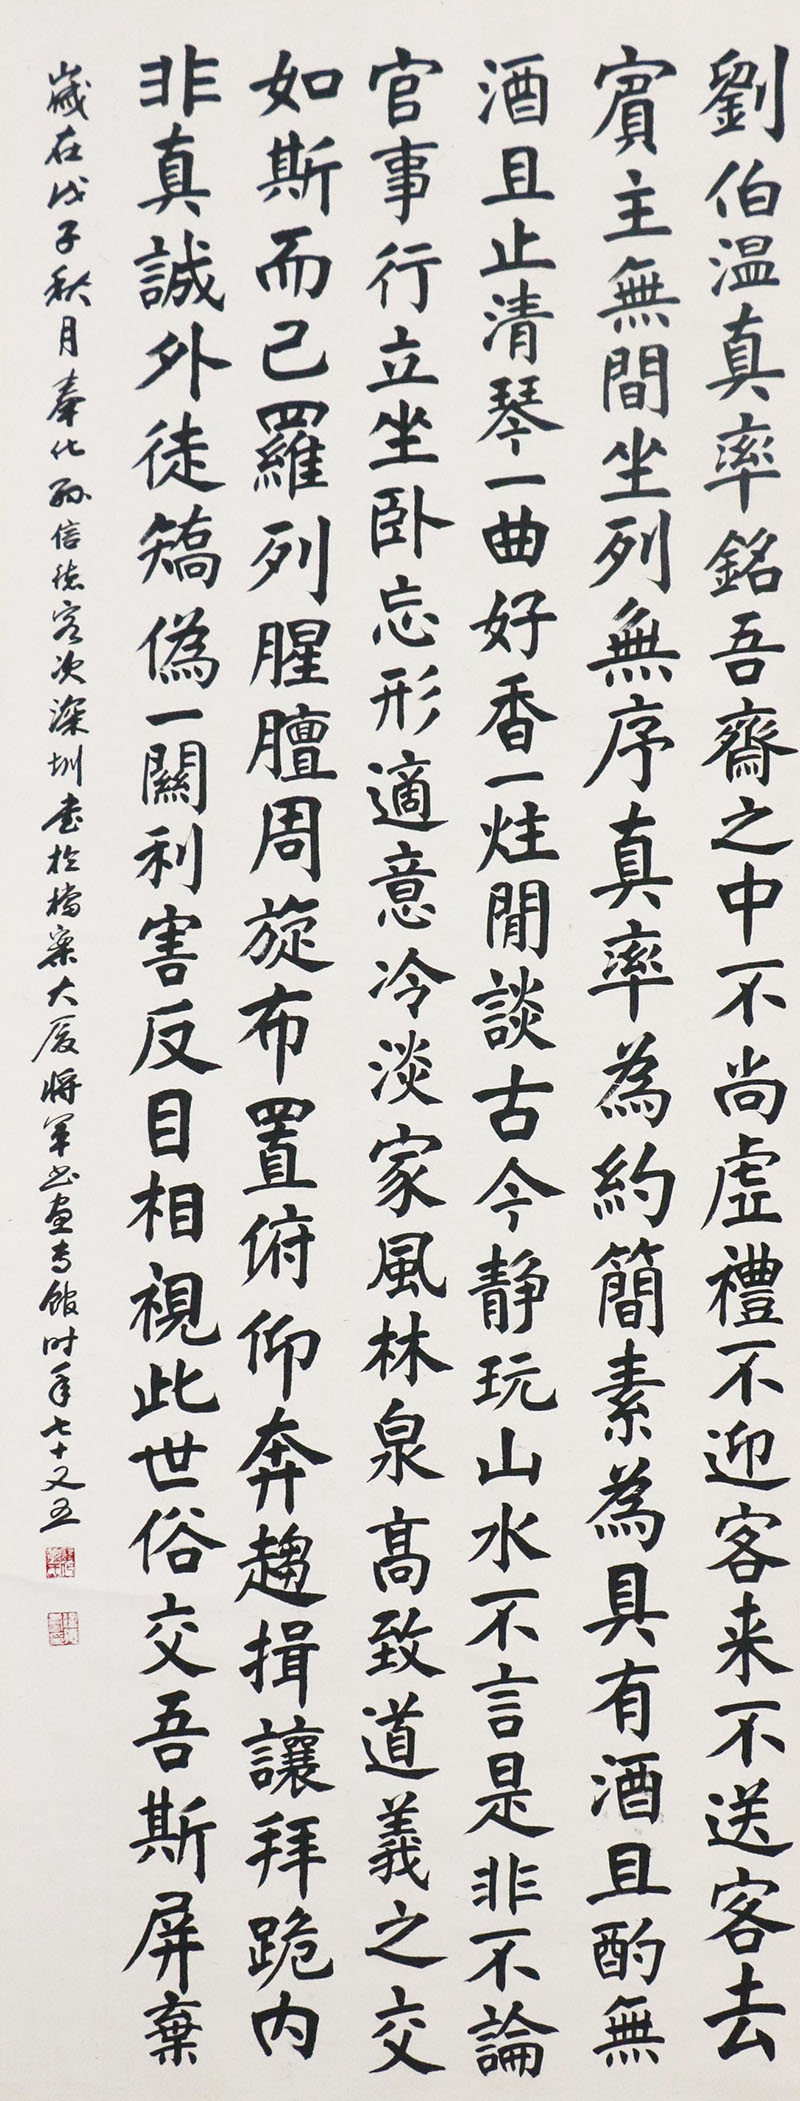 劉伯温真率銘吾齋之中不尚虛禮不迎客来不送客去
賓主無間坐列無序真率為約簡素為具有酒且酌無
酒且止清琴一曲好香一炷閒談古今静玩山水不言是非不論
官事行立坐卧忘形適意冷淡家風林泉高致道義之交
如斯而已羅列腥膻周旋布置俯仰奔趨揖讓拜跪内
非真誠外徒矯偽一關利害反目相視此世俗交吾斯屏棄
歲在戊子秋月奉化孫信德客次深圳書於檔案大廈將軍书画专館时年七十又五